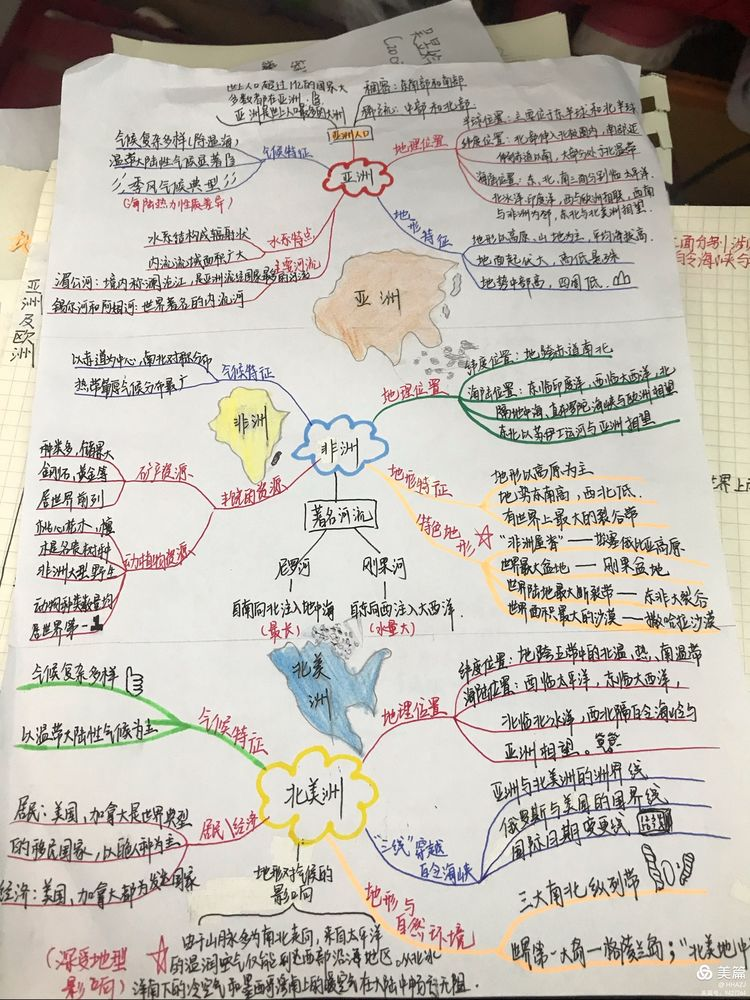 世上人口超过1亿的国家大
多数都在亚洲
亚洲是世上人口最多的大洲
稠密：东南部和南部
稀疏：中部和北部
亚洲人口
亚洲
气候特征
气候复杂多样(除温海)
温带大陆性气候显著
季风气候典型
(海陆热力性质差异)
地理位置
半球位置：主要位于东半球和北半球
纬度位置：北部伸入北极圈内，南部延
伸到赤道以南，大部分处于北温带
海陆位置：东、北、南三面分别临太平洋、
北冰洋印度洋，西与欧洲相联，西南
与非洲为邻，东北与北美洲相望.
水系特点
水系结构成辐射状
内流流域面积广大
主要河流
湄公河：境内称澜沧江，是亚洲流经国家最多的河流
锡尔河和阿姆河：世界著名的内流河
地形特征
地形以高原、山地为主，平均海拔高.
地面起伏大，高低悬殊
地势中部高，四周低.
亚洲
气候特征
以赤道为中心，南北对称分布
热带草原气候分布最广
非洲
非洲
地理位置
纬度位置：地跨赤道南北
海陆位置：东临印度洋，西临大西洋，北
隔地中海、直布罗陀海峡与欧洲相望
东北以苏伊士运河与亚洲相望
丰富的资源
矿产资源
种类多，储量大
金刚石，黄金等
居世界前列
动植物资源
非洲大型野生
动物种类数量均
居世界第一
著名河流
尼罗河
自南向北注入地中海
(最长)
刚果河
自东向西注入大西洋.
(水量大)
地形特征
地形以高原为主
地势东南高，西北低.
有世界上最大的裂谷带
特色地形
“非洲屋脊”——埃塞俄比亚高原.
世界最大盆地——刚果盆地
世界陆地最大断裂带——东非大裂谷
世界面积最大的沙漠——撒哈拉沙漠
北美洲
北美洲
气候特征
气候复杂多样
以温带大陆性气候为主
地理位置
纬度位置：地跨五带中的北温、热、南温带
海陆位置：西临太平洋，东临大西洋，
北临北冰洋，西北隔白令海峡与
亚洲相望.
“三线”穿越
白令海峡
亚洲与北美洲的洲界线
俄罗斯与美国的国界线
国际日期变更线
居民\经济
居民：美国，加拿大是世界典型
的移民国家，以白人种为主
经济：美国，加拿大都为发达国家
地形对气候的
影响
(深受地型
影响)
由于山脉多为南北走向，来自太平洋
的温润空气仅能到达西部沿海地区.从北冰
洋南下的冷空气和墨西哥湾南上的暖空气在大陆中畅行无阻.
地形与
自然环境
三大南北纵列带
世界第一大岛—格陵兰岛；“北美地中
亚洲及欧洲
美篇